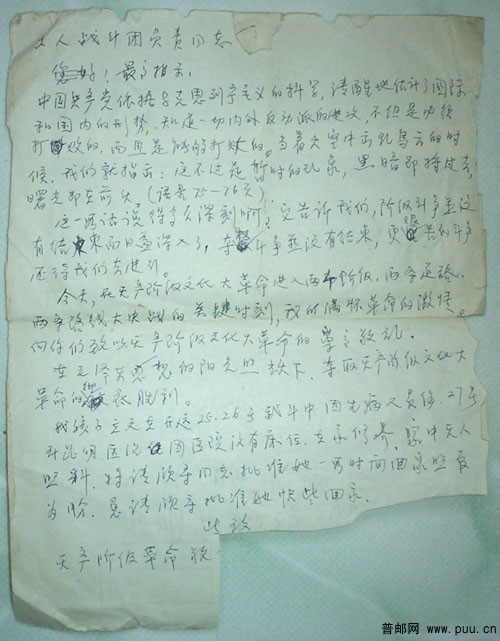 工人战斗团负责同志
您好!最高指示:
中国共产党依据马克思列宁主义的科学,清醒地估计了国际
和国内的形势,知道一切内外反动派的进攻,不但是必须
打败的,而且是能够打败的。当着天空中出现乌云的时
候,我们就指出:这不过是暂时的现象,黑暗即将过去,
曙光即在前头。(语录75—76页)
这一段话说得多么深刻啊!它告诉我们,阶级斗争并没
有结束而日益深入了,夺斗争并没有结束,更
还待我们去进行。
今天,在无产阶级文化大革命进入两个阶级、两条道路、
两条路线大决战的关键时刻,我们满怀革命的激情
向你们致以无产阶级文化大革命的崇高敬礼。
在毛泽东思想的阳光照耀下,夺取无产阶级文化大
革命的彻底胜利。
我孩子 25.26号 中因生病又负伤,27号
到昆明医治 因医院没有床位,在家修养,家中无人
照料,特请领导同志批准她一段时间回家照看
为盼,恳请领导批准她快些回家。
此致
无产阶级革命敬
普邮网 www.puu.cn